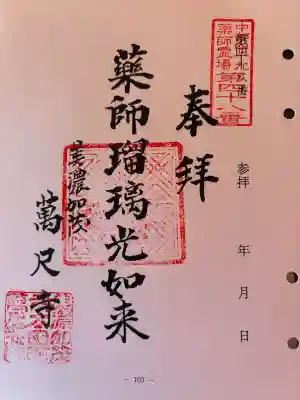 中部四十九薬師霊場第四十八番
奉拝
参拝 年 月 日
薬師瑠璃光如来
美濃加茂
萬尺寺
- 103 -